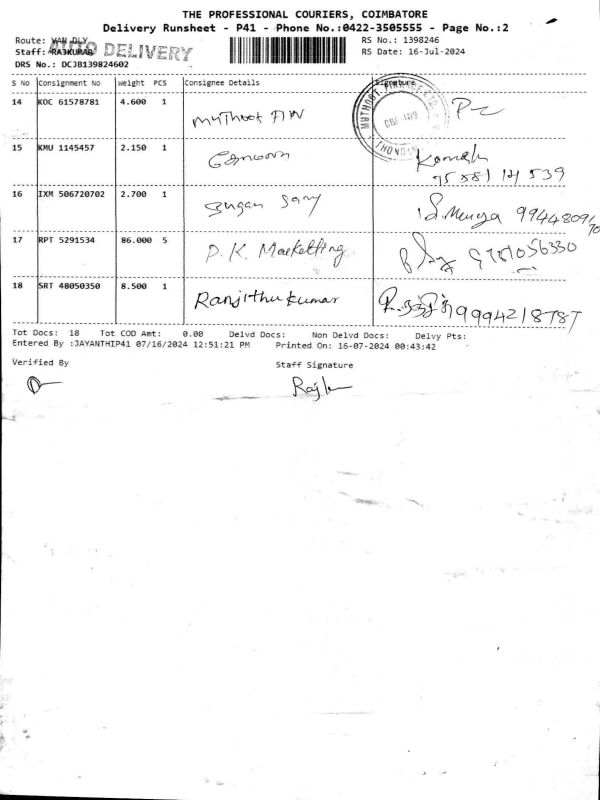 THE PROFESSIONAL COURIERS, COIMBATORE
Delivery Runsheet - P41 - Phone No.:0422-3505555 - Page No.:2
Route: VAN DLY
AUTO DELIVERY
RS No.: 1398246
Staff: RAJKUMAR
RS Date: 16-Jul-2024
DRS No.: DCJB139824602
S No Consignment No Weight PCS Consignee Details Signature
14 KOC 61578781 4.600 1 Muthoot FIN
MUTHOOT FINANCE LTD
15 KMU 1145457 2.150 1
75581 14 539
16 IXM 506720702 2.700 1 Sugan Sany
17 RPT 5291534 86.000 5 P.K. Marketting 9787056330
18 SRT 48050350 8.500 1 Ranjithu kumar 9994218787
Tot Docs: 18 Tot COD Amt: 0.00 Delvd Docs: Non Delvd Docs: Delvy Pts:
Entered By :JAYANTHIP41 07/16/2024 12:51:21 PM Printed On: 16-07-2024 00:43:42
Verified By Staff Signature